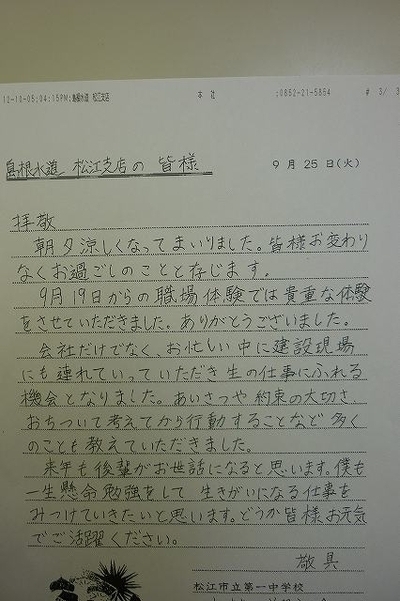 12-10-05;04:15PM;島根水道 松江支店
本 社
;0852-21-5854
# 3/ 3
島根水道 松江支店の 皆様
9 月 25 日(火)
拝敬
朝夕涼しくなってまいりました。皆様お変わり
なくお過ごしのことと存じます。
9月19日からの職場体験では貴重な体験
をさせていただきました。ありがとうございました。
会社だけでなく、お忙しい中に建設現場
にも連れていっていただき生の仕事にふれる
機会となりました。あいさつや約束の大切さ、
おちついて考えてから行動することなど多く
のことも教えていただきました。
来年も後輩がお世話になると思います。僕も
一生懸命勉強をして生きがいになる仕事を
みつけていきたいと思います。どうか皆様お元気
でご活躍ください。
敬具
松江市立第一中学校